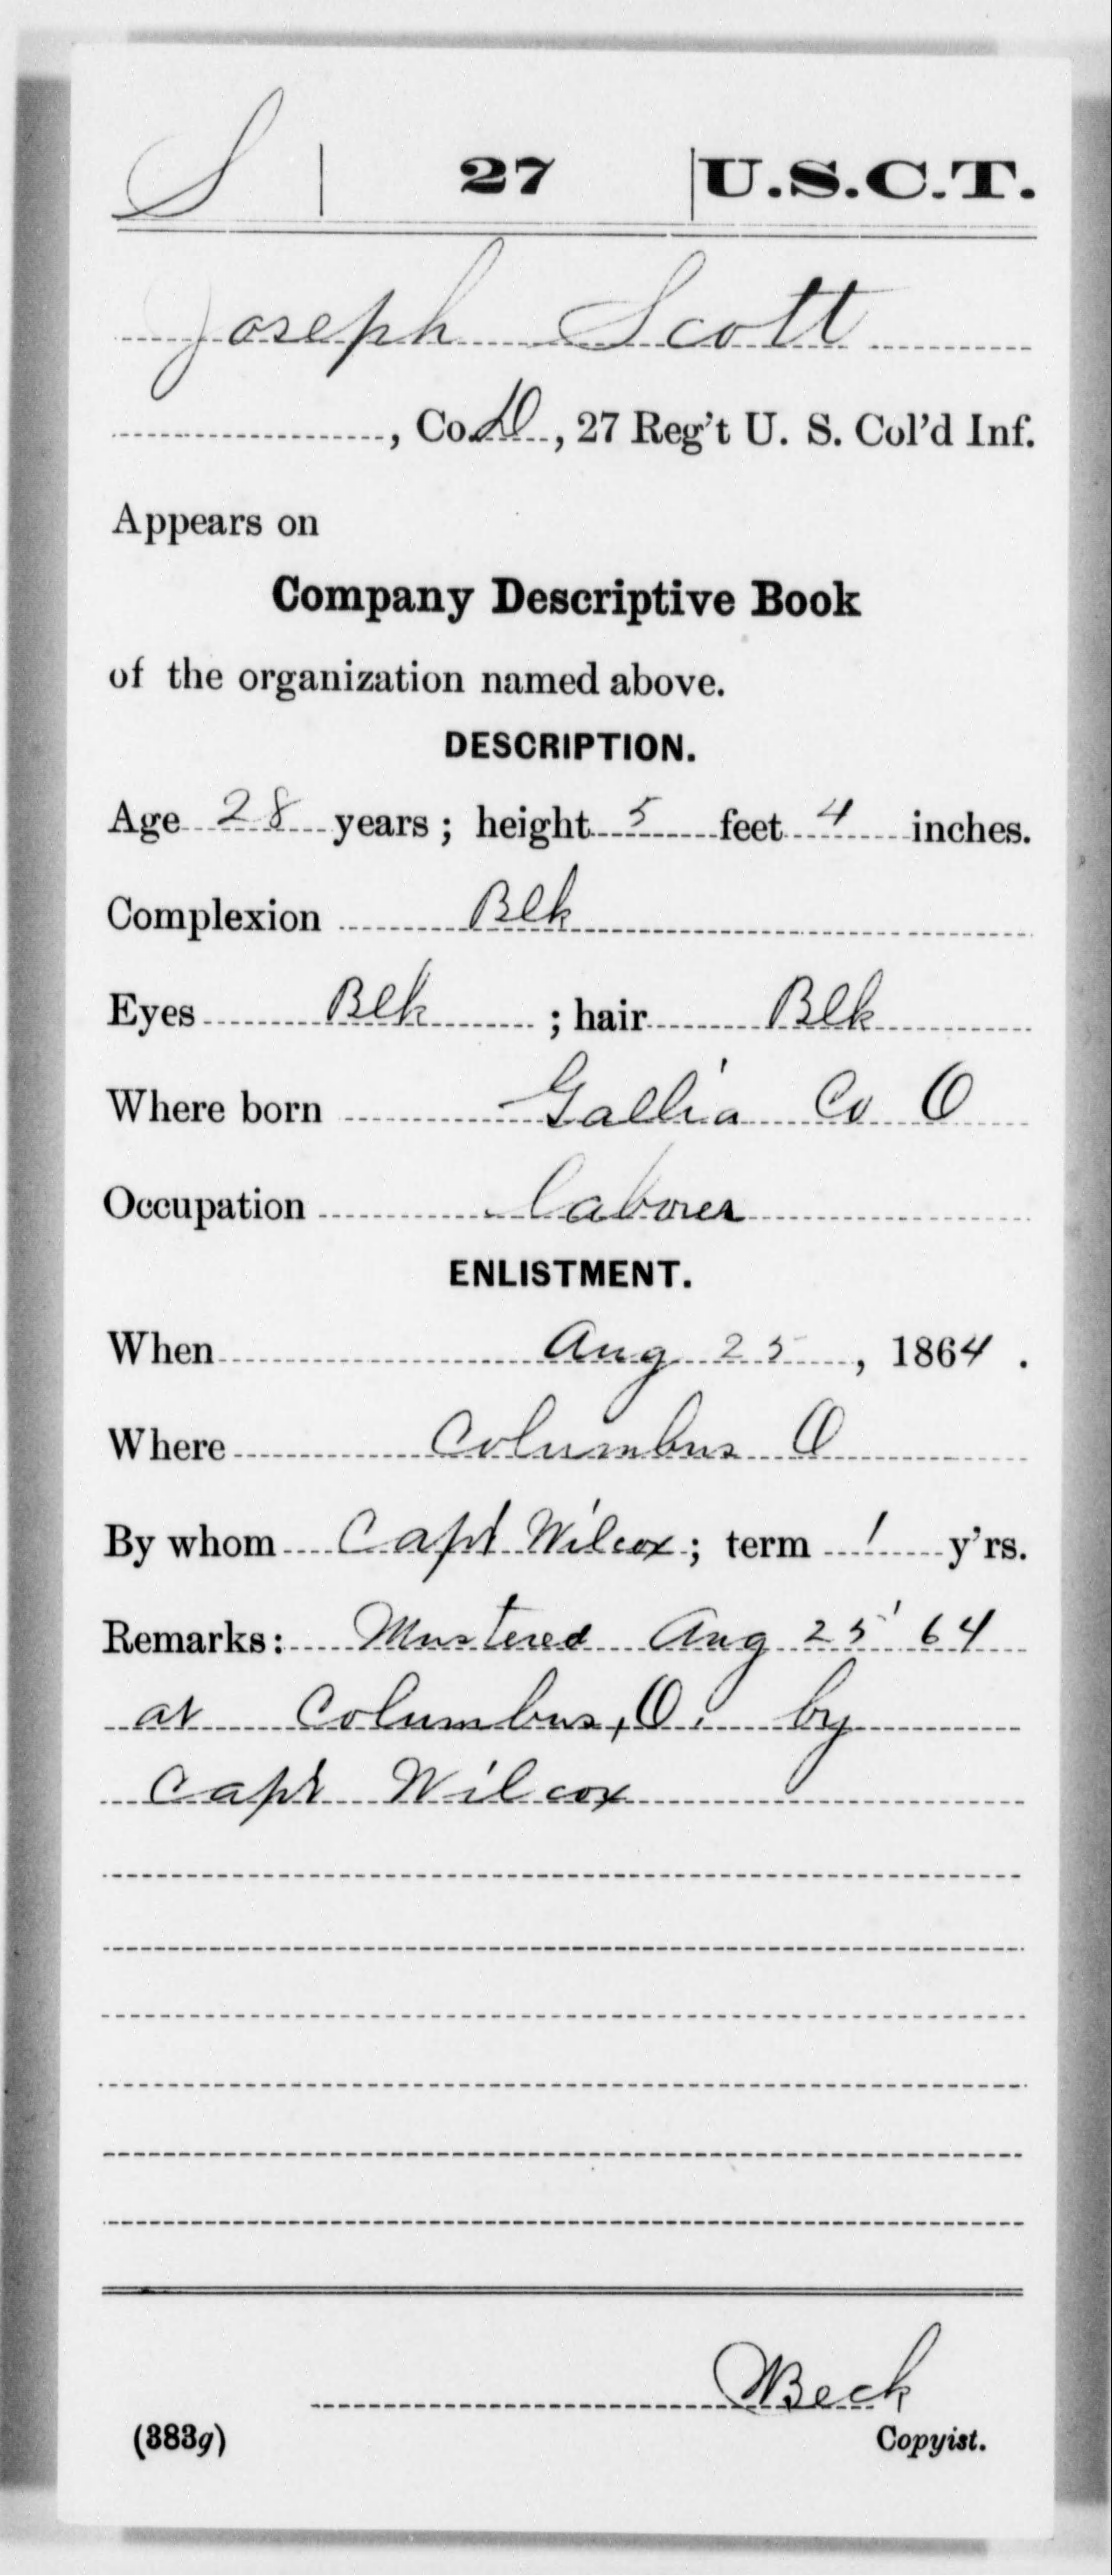 S | 27 | U.S.C.T.
Joseph Scott
, Co. D, 27 Reg't U. S. Col'd Inf.
Appears on
Company Descriptive Book
of the organization named above.
DESCRIPTION.
Age 28 years; height 5 feet 4 inches.
Complexion Blk
Eyes Blk ; hair Blk
Where born Gallia Co O
Occupation laborer
ENLISTMENT.
When Aug 25, 1864.
Where Columbus O
By whom Capt Wilcox; term 1 y'rs.
Remarks: Mustered Aug 25' 64
at Columbus, O. by
Capt Wilcox
Beck
(383g) Copyist.